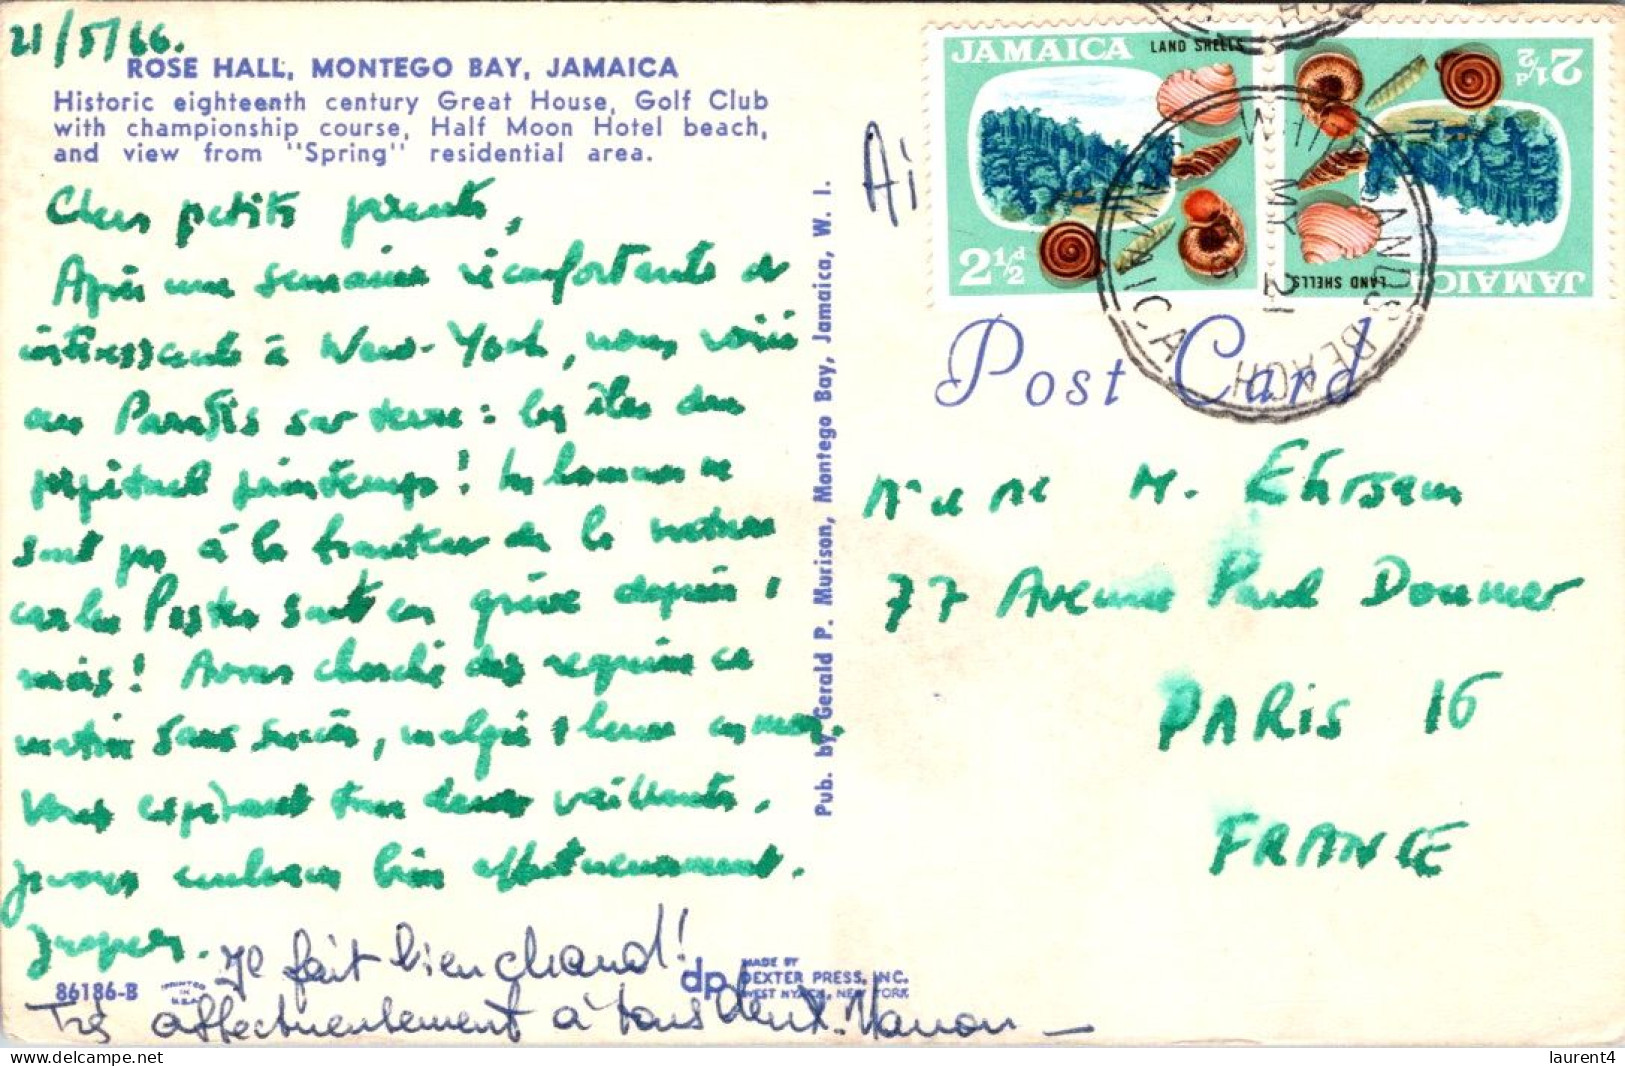 21/5/66.
ROSE HALL, MONTEGO BAY, JAMAICA
Historic eighteenth century Great House, Golf Club
with championship course, Half Moon Hotel beach,
and view from "Spring" residential area.
Chers petits parents,
Après une semaine réconfortante et
intéressante à New-York, nous voici
au Paradis sur terre : les îles du
perpétuel printemps ! Les hommes ne
sont pas à la hauteur de la nature
car les Postes sont en grève depuis 1
mois ! Avons cherché des requins ce
matin sans succès, malgré 1 heure en mer.
Vous espérant tous deux vaillants,
je vous embrasse bien affectueusement.
Jacques.
Il fait bien chaud !
Très affectueusement à tous deux. Manon
86186-B
PRINTED IN U.S.A.
dp MADE BY
DEXTER PRESS, INC.
WEST NYACK, NEW YORK
Pub. by Gerald P. Murison, Montego Bay, Jamaica, W. I.
Ai
JAMAICA LAND SHELLS
2½d
JAMAICA LAND SHELLS
2½d
WHITE SANDS BEACH
MY 21
JAMAICA
Post Card
M. Ehrsam
77 Avenue Paul Doumer
PARIS 16
FRANCE
laurent4